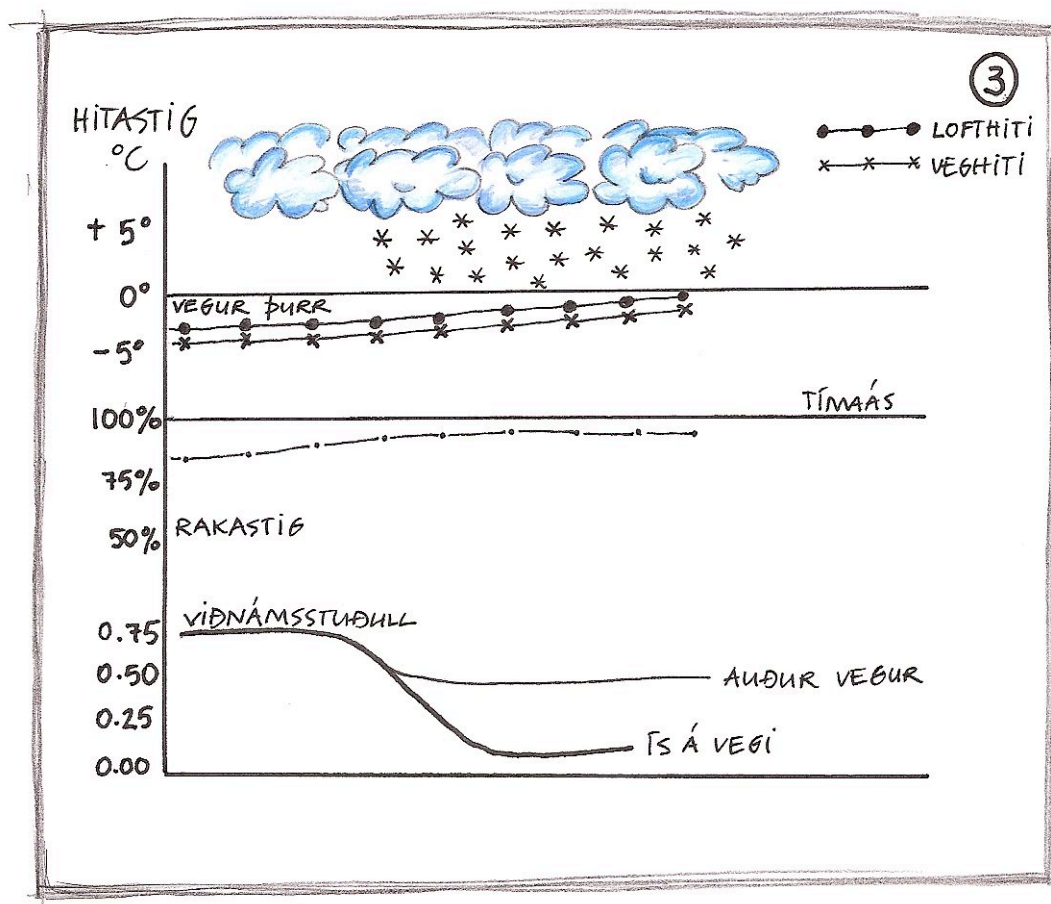 ③
HITASTIG
°C
LOFTHITI
VEGHITI
+5°
0°
VEGUR ÞURR
-5°
TÍMAÁS
100%
75%
50%
RAKASTIG
VIÐNÁMSSTUÐULL
0.75
0.50
AUÐUR VEGUR
0.25
ÍS Á VEGI
0.00